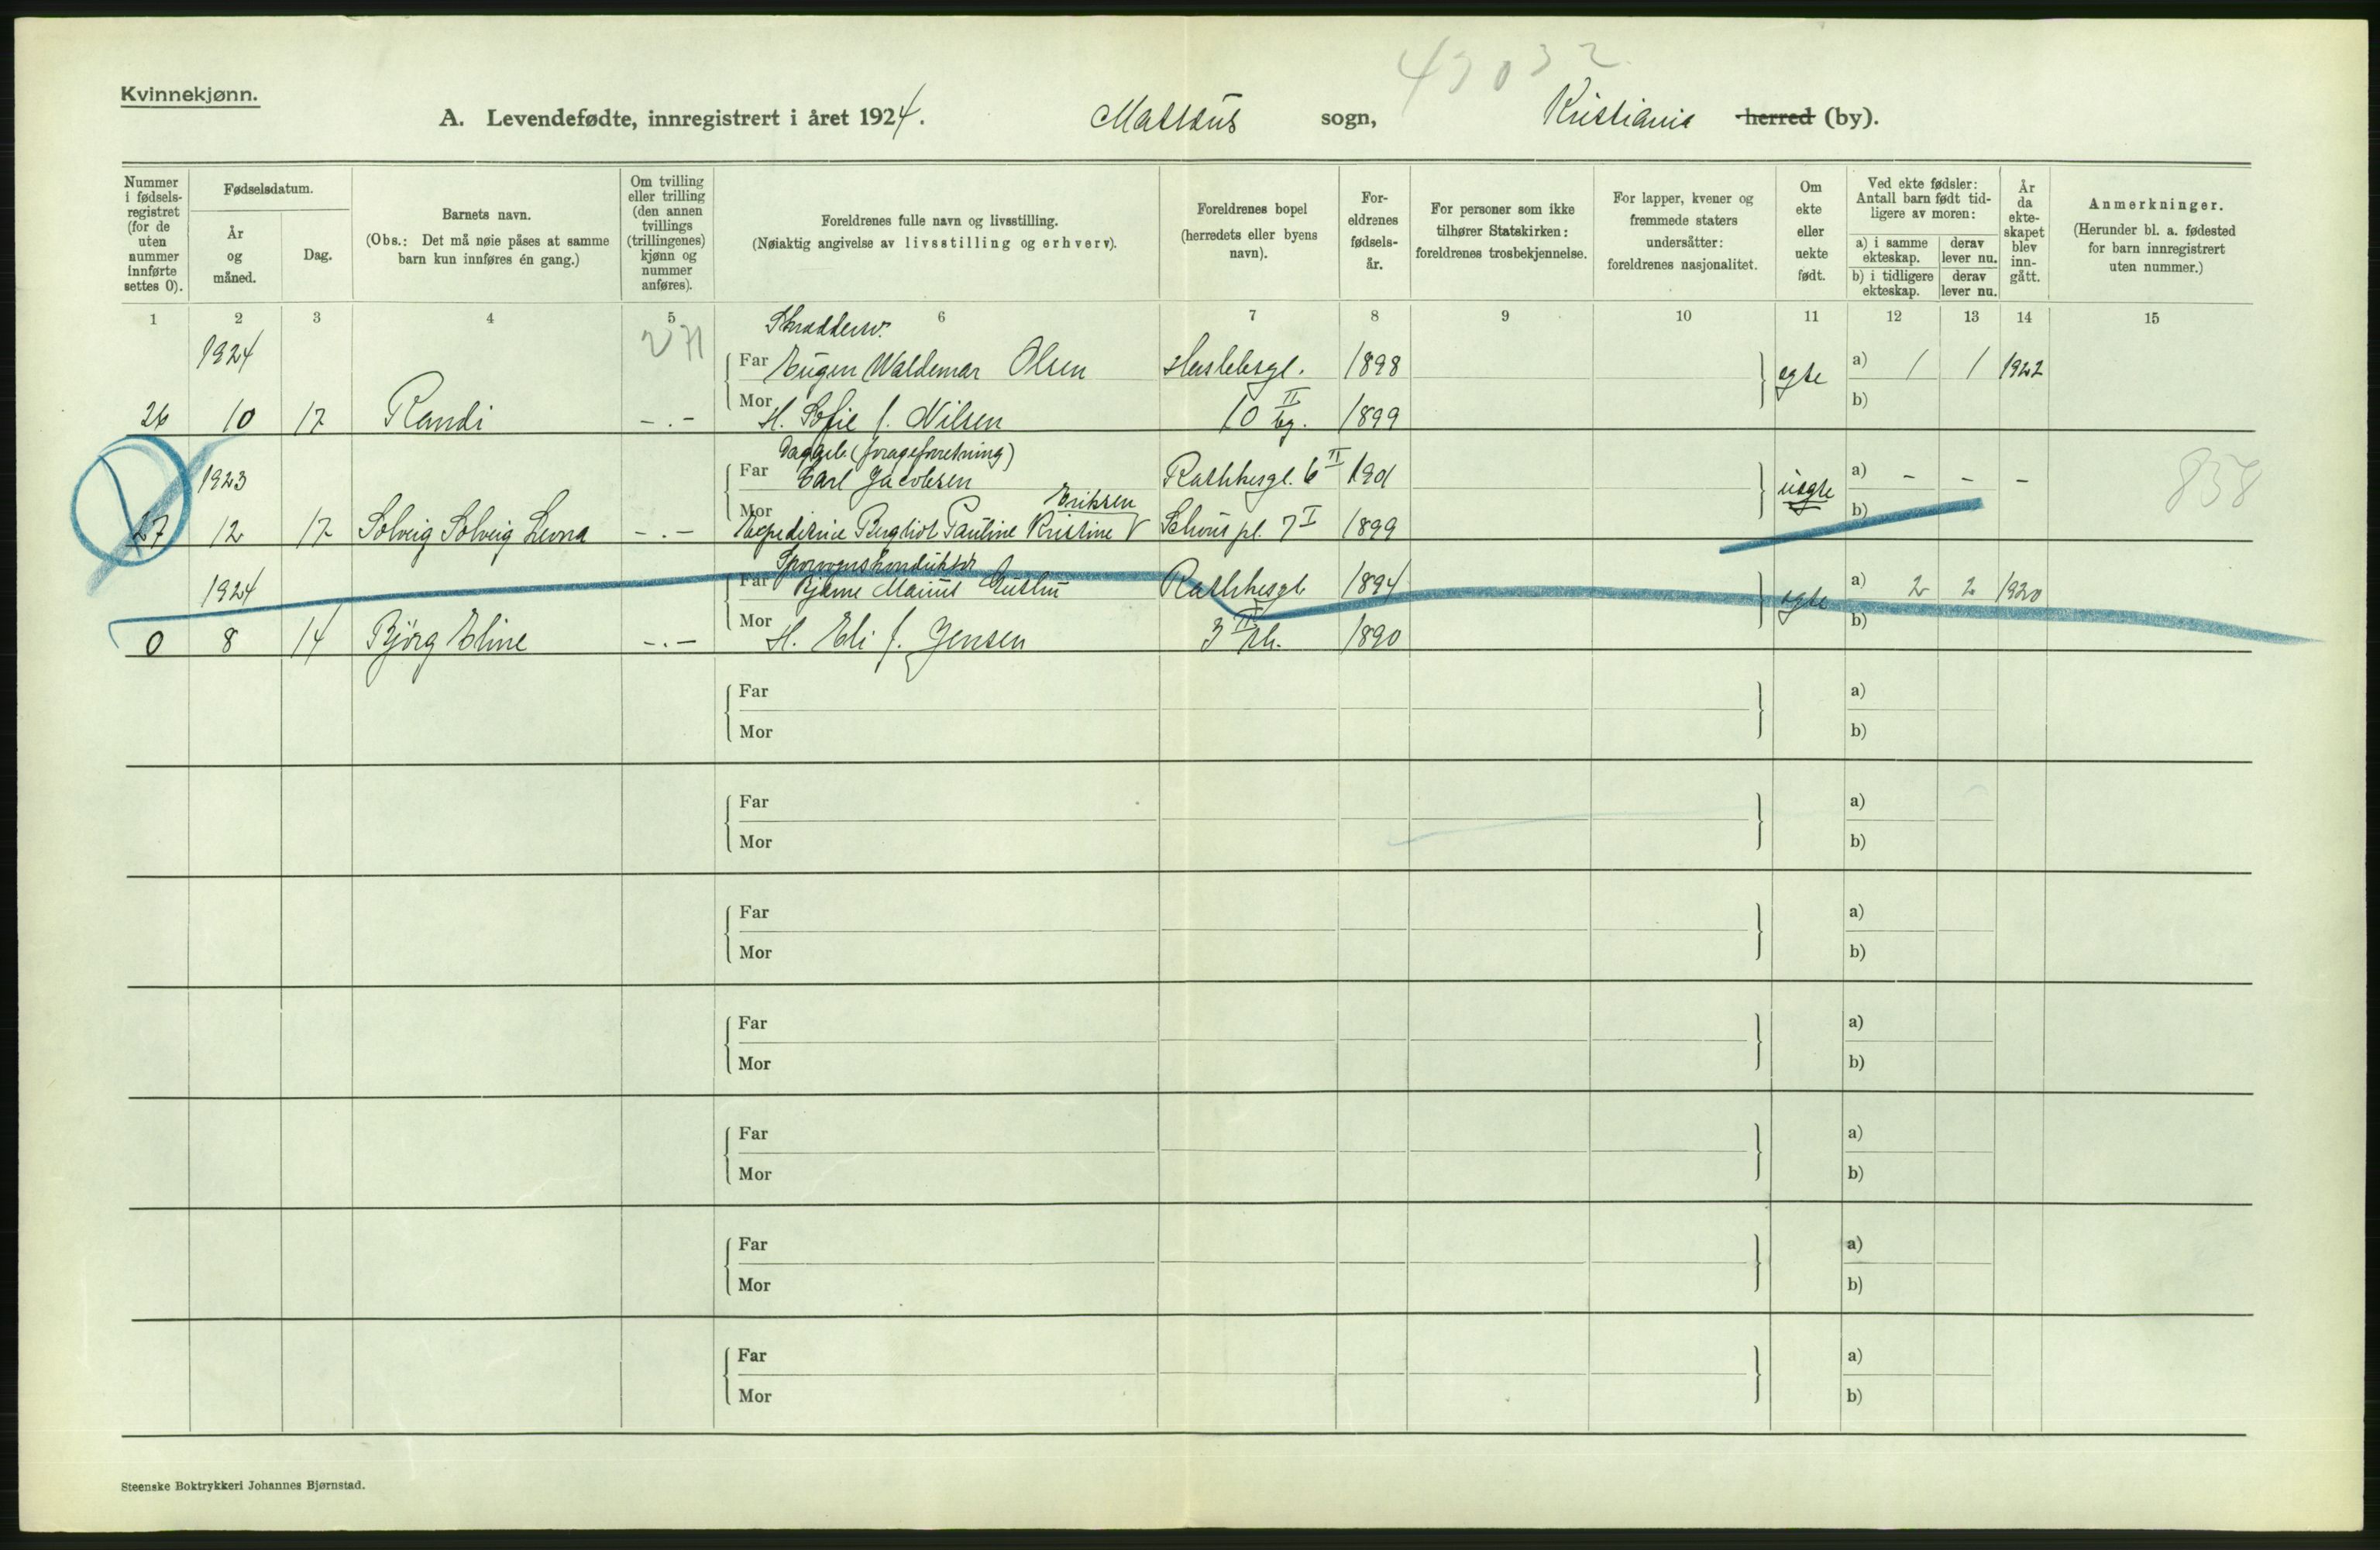 43032
Kvinnekjønn.
A. Levendefødte, innregistrert i året 1924. Matteus sogn, Kristiania herred (by).
Nummer i fødsels-registret (for de uten nummer innførte settes 0).
Fødselsdatum.
År og måned.
Dag.
Barnets navn.
(Obs.: Det må nøie påses at samme barn kun innføres én gang.)
Om tvilling eller trilling (den annen tvillings (trillingenes) kjønn og nummer anføres).
Foreldrenes fulle navn og livsstilling.
(Nøiaktig angivelse av livsstilling og erhverv).
Foreldrenes bopel (herredets eller byens navn).
For-eldrenes fødsels-år.
For personer som ikke tilhører Statskirken: foreldrenes trosbekjennelse.
For lapper, kvener og fremmede staters undersåtter: foreldrenes nasjonalitet.
Om ekte eller uekte født.
Ved ekte fødsler: Antall barn født tid-ligere av moren:
a) i samme ekteskap.
derav lever nu.
b) i tidligere ekteskap.
derav lever nu.
År da ekte-skapet blev inn-gått.
Anmerkninger.
(Herunder bl. a. fødested for barn innregistrert uten nummer.)
1 2 3 4 5 6 7 8 9 10 11 12 13 14 15
271
1924
Far Eugen Waldemar Olsen Herslebsgt. 1898 egte a) 1 1 1922
26 10 17 Randi -.- Mor H. Sofie f. Nilsen 10 II 1899 b)
1923
Far Carl Jacobsen Rathkesgt. 6 II 1901 uegte a) - - - 858
Eriksen
27 12 17 Solveig Solveig Leona -.- Mor Expeditrice Bergliot Pauline Kristine Schous pl. 7 I 1899 b)
Sporveiskonduktør
1924 Far Bjarne Marius Rathkesgt. 1894 egte a) 2 2 1920
0 8 14 Bjørg Eline -.- Mor H. Eli f. Jensen 3 II 1890 b)
Far a)
Mor b)
Far a)
Mor b)
Far a)
Mor b)
Far a)
Mor b)
Far a)
Mor b)
Far a)
Mor b)
Far a)
Mor b)
Steenske Boktrykkeri Johannes Bjørnstad.